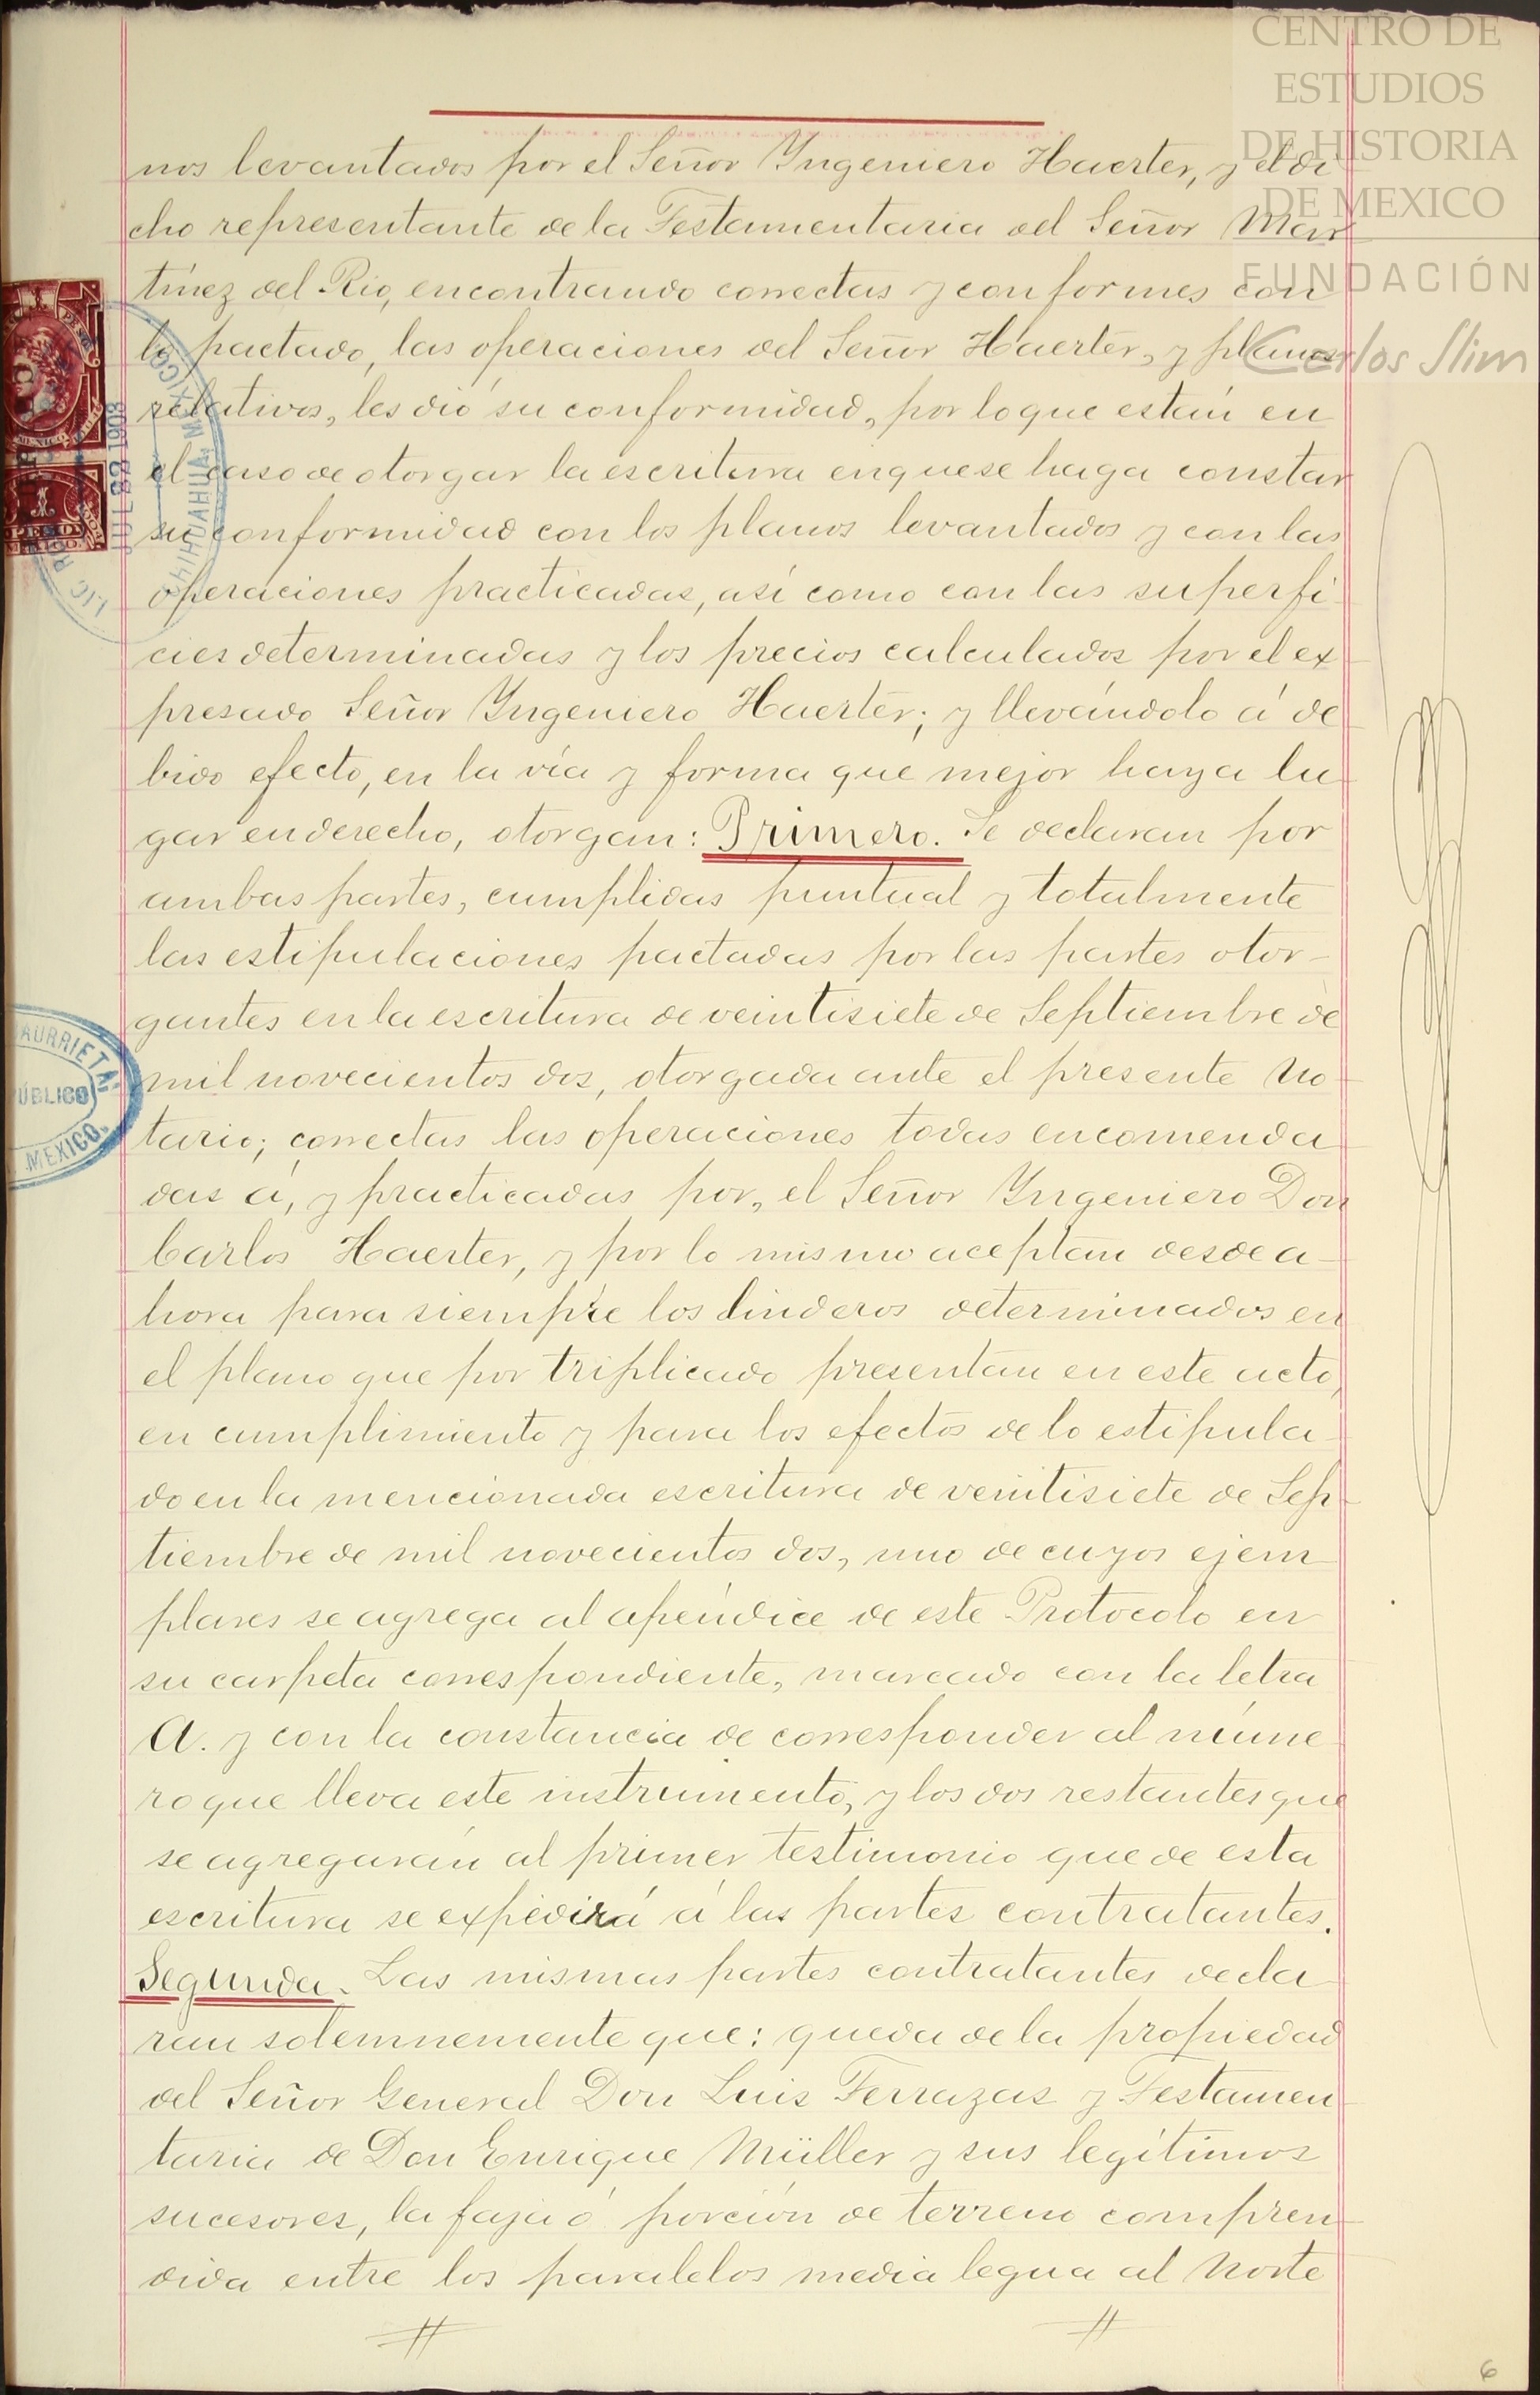 CENTRO DE
ESTUDIOS
DE HISTORIA
DE MEXICO
FUNDACIÓN
Carlos Slim
nos levantados por el Señor Yngeniero Haerter, y el di
cho representante de la Testamentaria del Señor Mar
tínez del Rio, encontrando correctas y conformes con
lo pactado, las operaciones del Señor Haerter, y planos
relativos, les dió su conformidad, por lo que están en
el caso de otorgar la escritura en que se haga constar
su conformidad con los planos levantados y con las
operaciones practicadas, así como con las superfi
cies determinadas y los precios calculados por el ex
presado Señor Yngeniero Haerter; y llevándolo á de
bido efecto, en la vía y forma que mejor haya lu
gar en derecho, otorgan: Primero. Se declaran por
ambas partes, cumplidas puntual y totalmente
las estipulaciones pactadas por las partes otor-
gantes en la escritura de veintisiete de Septiembre de
mil novecientos dos, otorgada ante el presente No
tario; correctas las operaciones todas encomenda
das á, y practicadas por, el Señor Yngeniero Don
Carlos Haerter, y por lo mismo aceptan desde a-
hora para siempre los linderos determinados en
el plano que por triplicado presentan en este acto,
en cumplimiento y para los efectos de lo estipula
do en la mencionada escritura de veintisiete de Sep
tiembre de mil novecientos dos, uno de cuyos ejem
plares se agrega al apéndice de este Protocolo en
su carpeta correspondiente, marcado con la letra
A. y con la constancia de corresponder al núme
ro que lleva este instrumento, y los dos restantes que
se agregarán al primer testimonio que de esta
escritura se expedirá á las partes contratantes.
Segunda. Las mismas partes contratantes decla
ran solemnemente que: queda de la propiedad
del Señor General Don Luis Terrazas y Testamen
taria de Don Enrique Müller y sus legítimos
sucesores, la faja ó porción de terreno compren
dida entre los paralelos media legua al Norte
JUL 22 1903
LIC
CHIHUAHUA, MEXICO
PESO
AURRIETA
PÚBLICO
MEXICO.
6